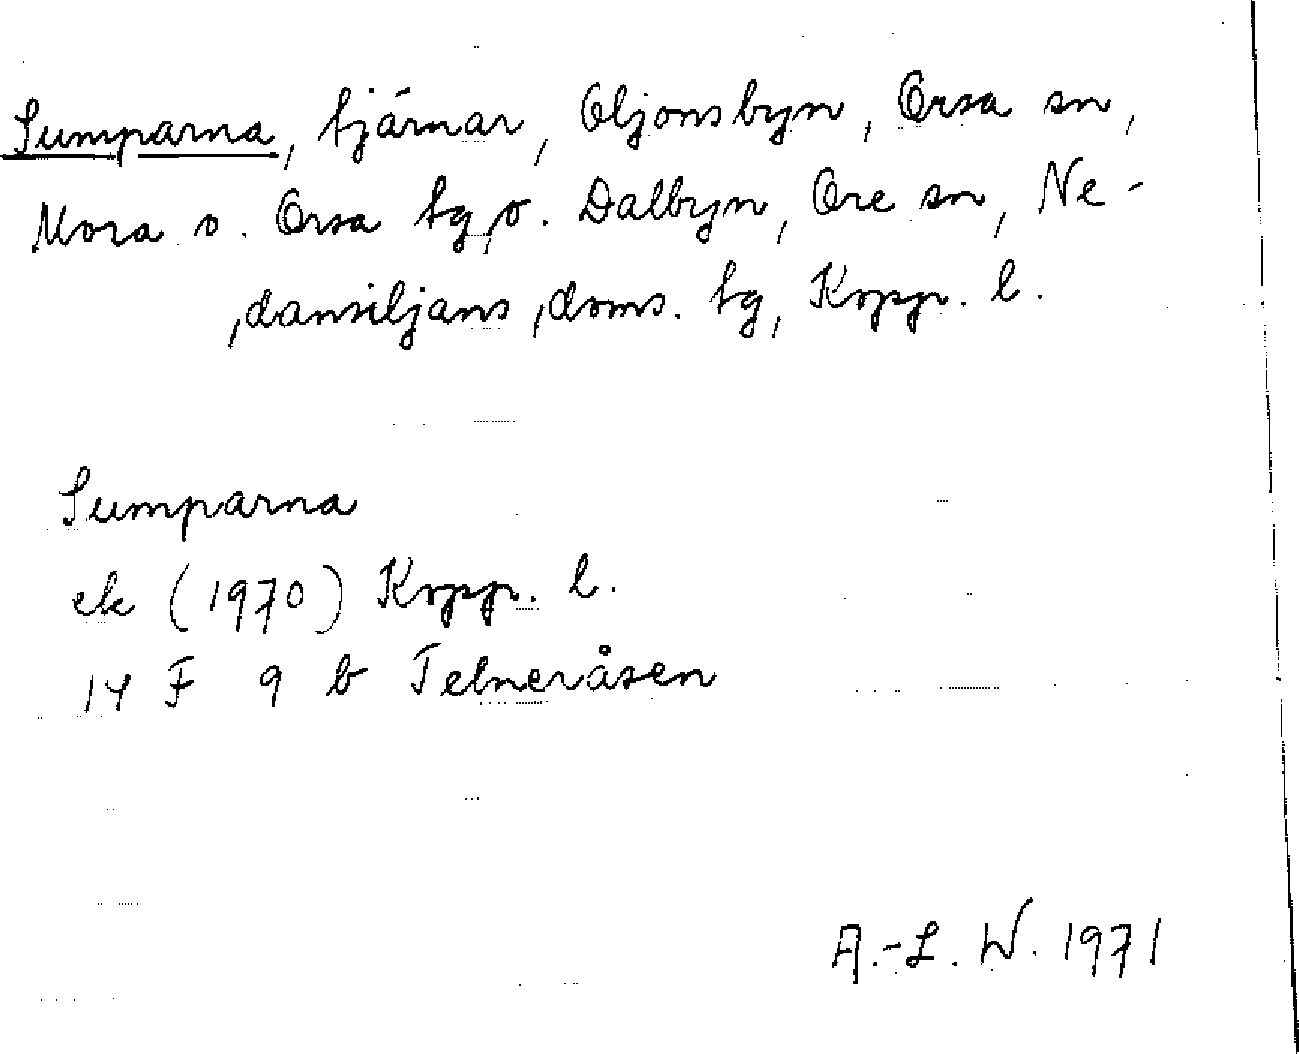 Sumparna, tjärnar, Oljonsbyn, Orsa sn,
Mora o. Orsa tg, o. Dalbyn, Ore sn, Ne-
dansiljans doms. tg, Kopp. l.
Sumparna
ek (1970) Kopp. l.
14 F 9 b Telneråsen
A.-L. W. 1971